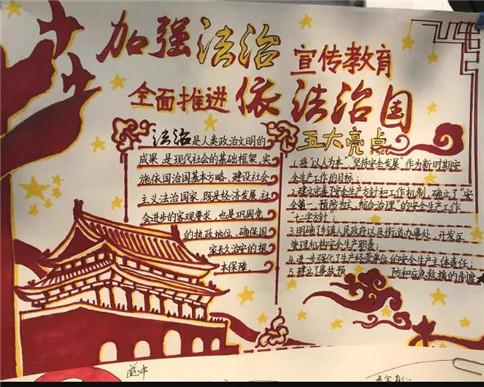 加强法治 宣传教育
全面推进 依法治国
法治是人类政治文明的
成果 是现代社会的基础框架 实
施依国治国基本方略 建设社会
主义法治国家 既是经济发展 社
会进步的客观要求 也是巩固党
的执政地位 确保国
家长久治安的根
本保障
五大亮点
1.进“以人为本”坚持安全发展”作为新时期安
全生产工作的目标;
2.建立完善了安全生产方针和工作机制,确立了“安
全第一 预防为主 综合治理”的安全生产工作
“十二字方针;
3.明确了乡镇人民政府以及街道办事处、开发区
管理机构安全生产职责;
4.进一步强化了生产经营单位的安全生产主体责任;
5.建立了事故预防和应急救援的制度